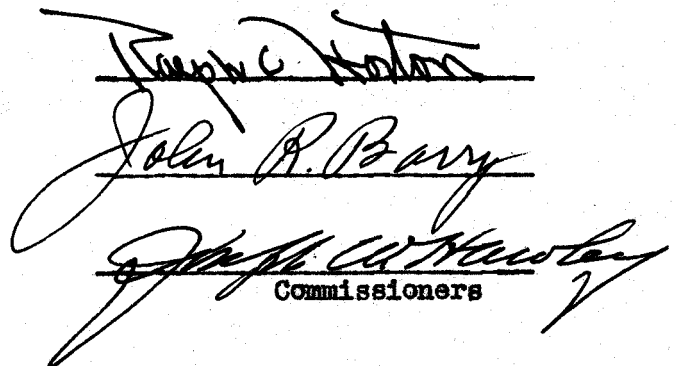 Ralph C. Horton
John R. Barry
Joseph W. Hawley
Commissioners